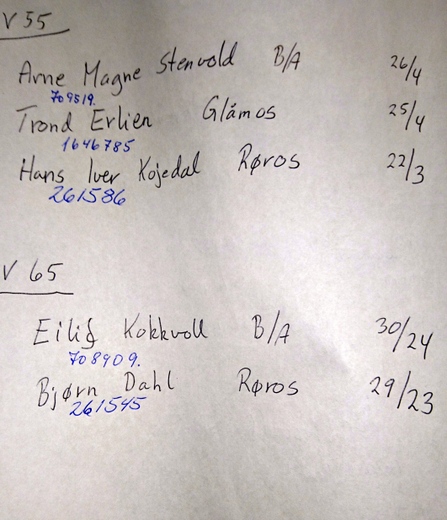 V 55
Arne Magne Stenvold B/A 26/4
709519.
Trond Erlien Glåmos 25/4
1646785
Hans Iver Kojedal Røros 22/3
261586
V 65
Eilif Kokkvoll B/A 30/24
708909.
Bjørn Dahl Røros 29/23
261545